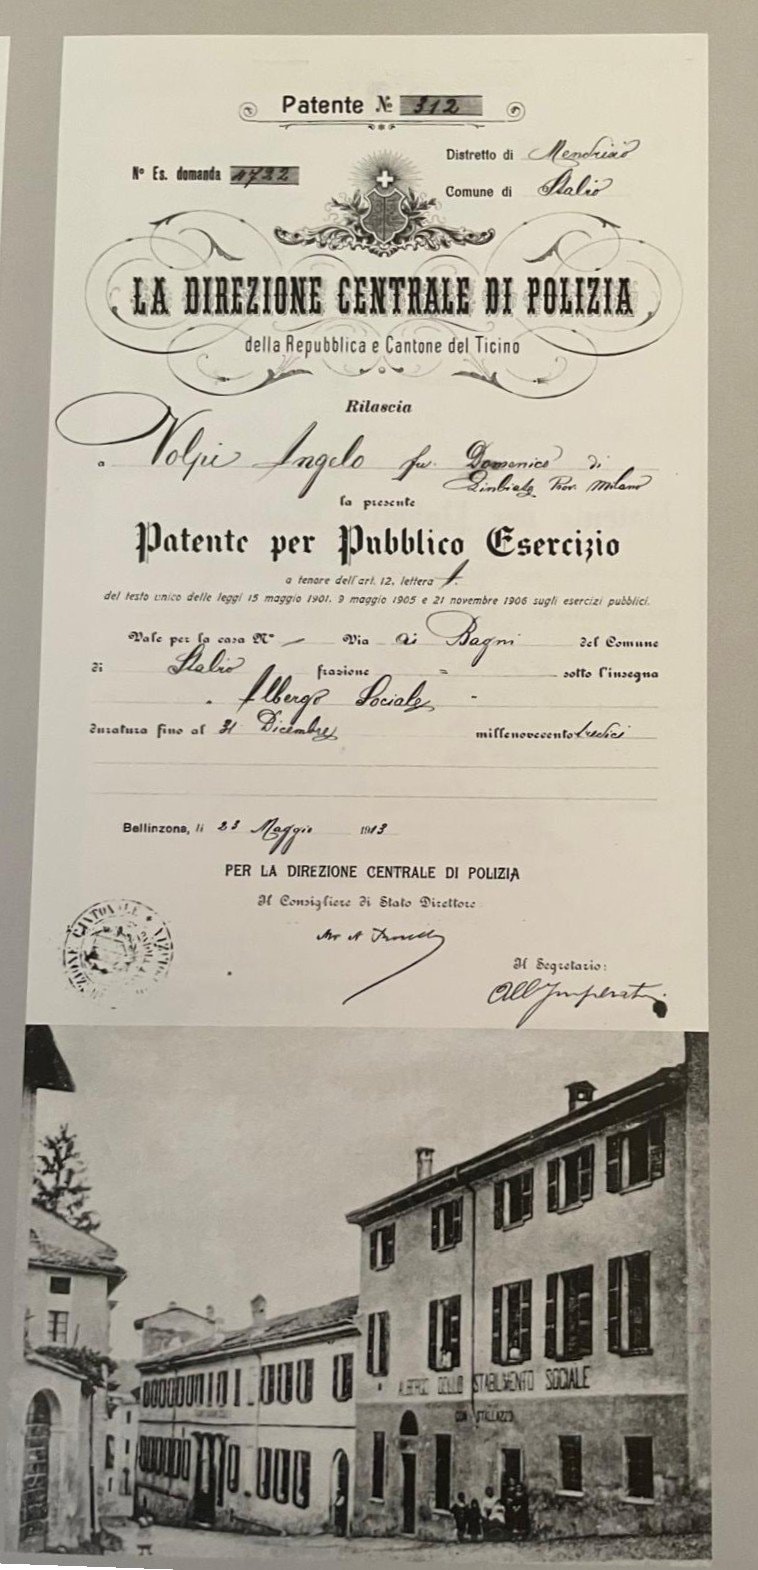 Patente № 312
Nº Es. domanda 4722
Distretto di Mendrisio
Comune di Stabio
LA DIREZIONE CENTRALE DI POLIZIA
della Repubblica e Cantone del Ticino
Rilascia
a Volpi Angelo fu Domenico di
Prov. Milano
la presente
Patente per Pubblico Esercizio
a tenore dell'art. 12, lettera
del testo unico delle leggi 15 maggio 1901, 9 maggio 1905 e 21 novembre 1906 sugli esercizi pubblici.
Vale per la casa Nº — Via ai Bagni del Comune
di Stabio frazione = sotto l'insegna
" Albergo Sociale "
duratura fino al 31 Dicembre millenovecento tredici
Bellinzona, li 23 Maggio 1913
PER LA DIREZIONE CENTRALE DI POLIZIA
Il Consigliere di Stato Direttore
Il Segretario:
ALBERGO DELLO STABILIMENTO SOCIALE
CON STALLAZZO